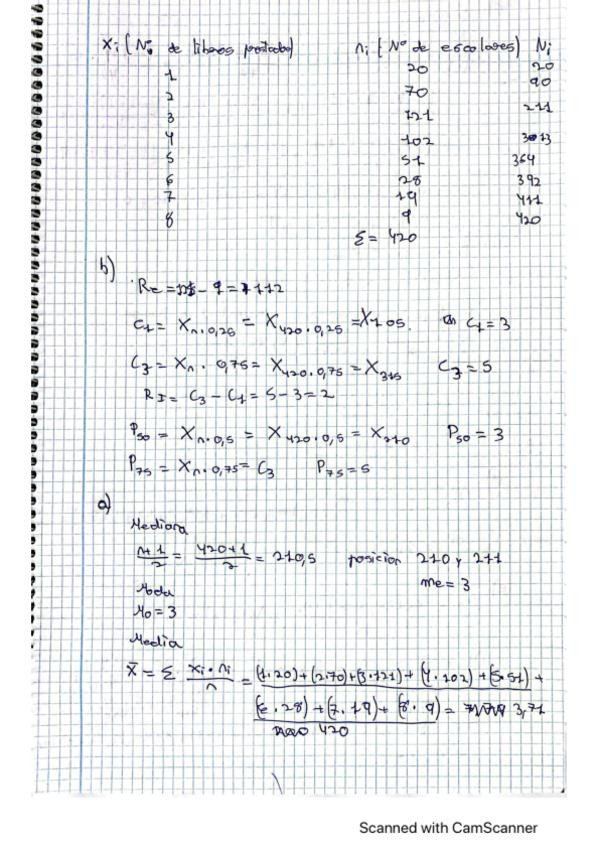 xi (Nº de libros prestados) ni (Nº de escolares) Ni
1 20 20
2 70 90
3 121 211
4 102 313
5 51 364
6 28 392
7 19 411
8 9 420
Σ = 420
b)
Re = 121 - 9 = 112
C1 = Xn·0,25 = X420·0,25 = X105. C1 = 3
C3 = Xn·0,75 = X420·0,75 = X315 C3 = 5
RI = C3 - C1 = 5 - 3 = 2
P50 = Xn·0,5 = X420·0,5 = X210 P50 = 3
P75 = Xn·0,75 = C3 P75 = 5
a)
Mediana
n+1/2 = 420+1/2 = 210,5 posicion 210 y 211
me = 3
Moda
Mo = 3
Media
x̄ = Σ xi·ni/n = (1·20)+(2·70)+(3·121)+(4·102)+(5·51)+
(6·28)+(7·19)+(8·9) = 3,71
420
Scanned with CamScanner